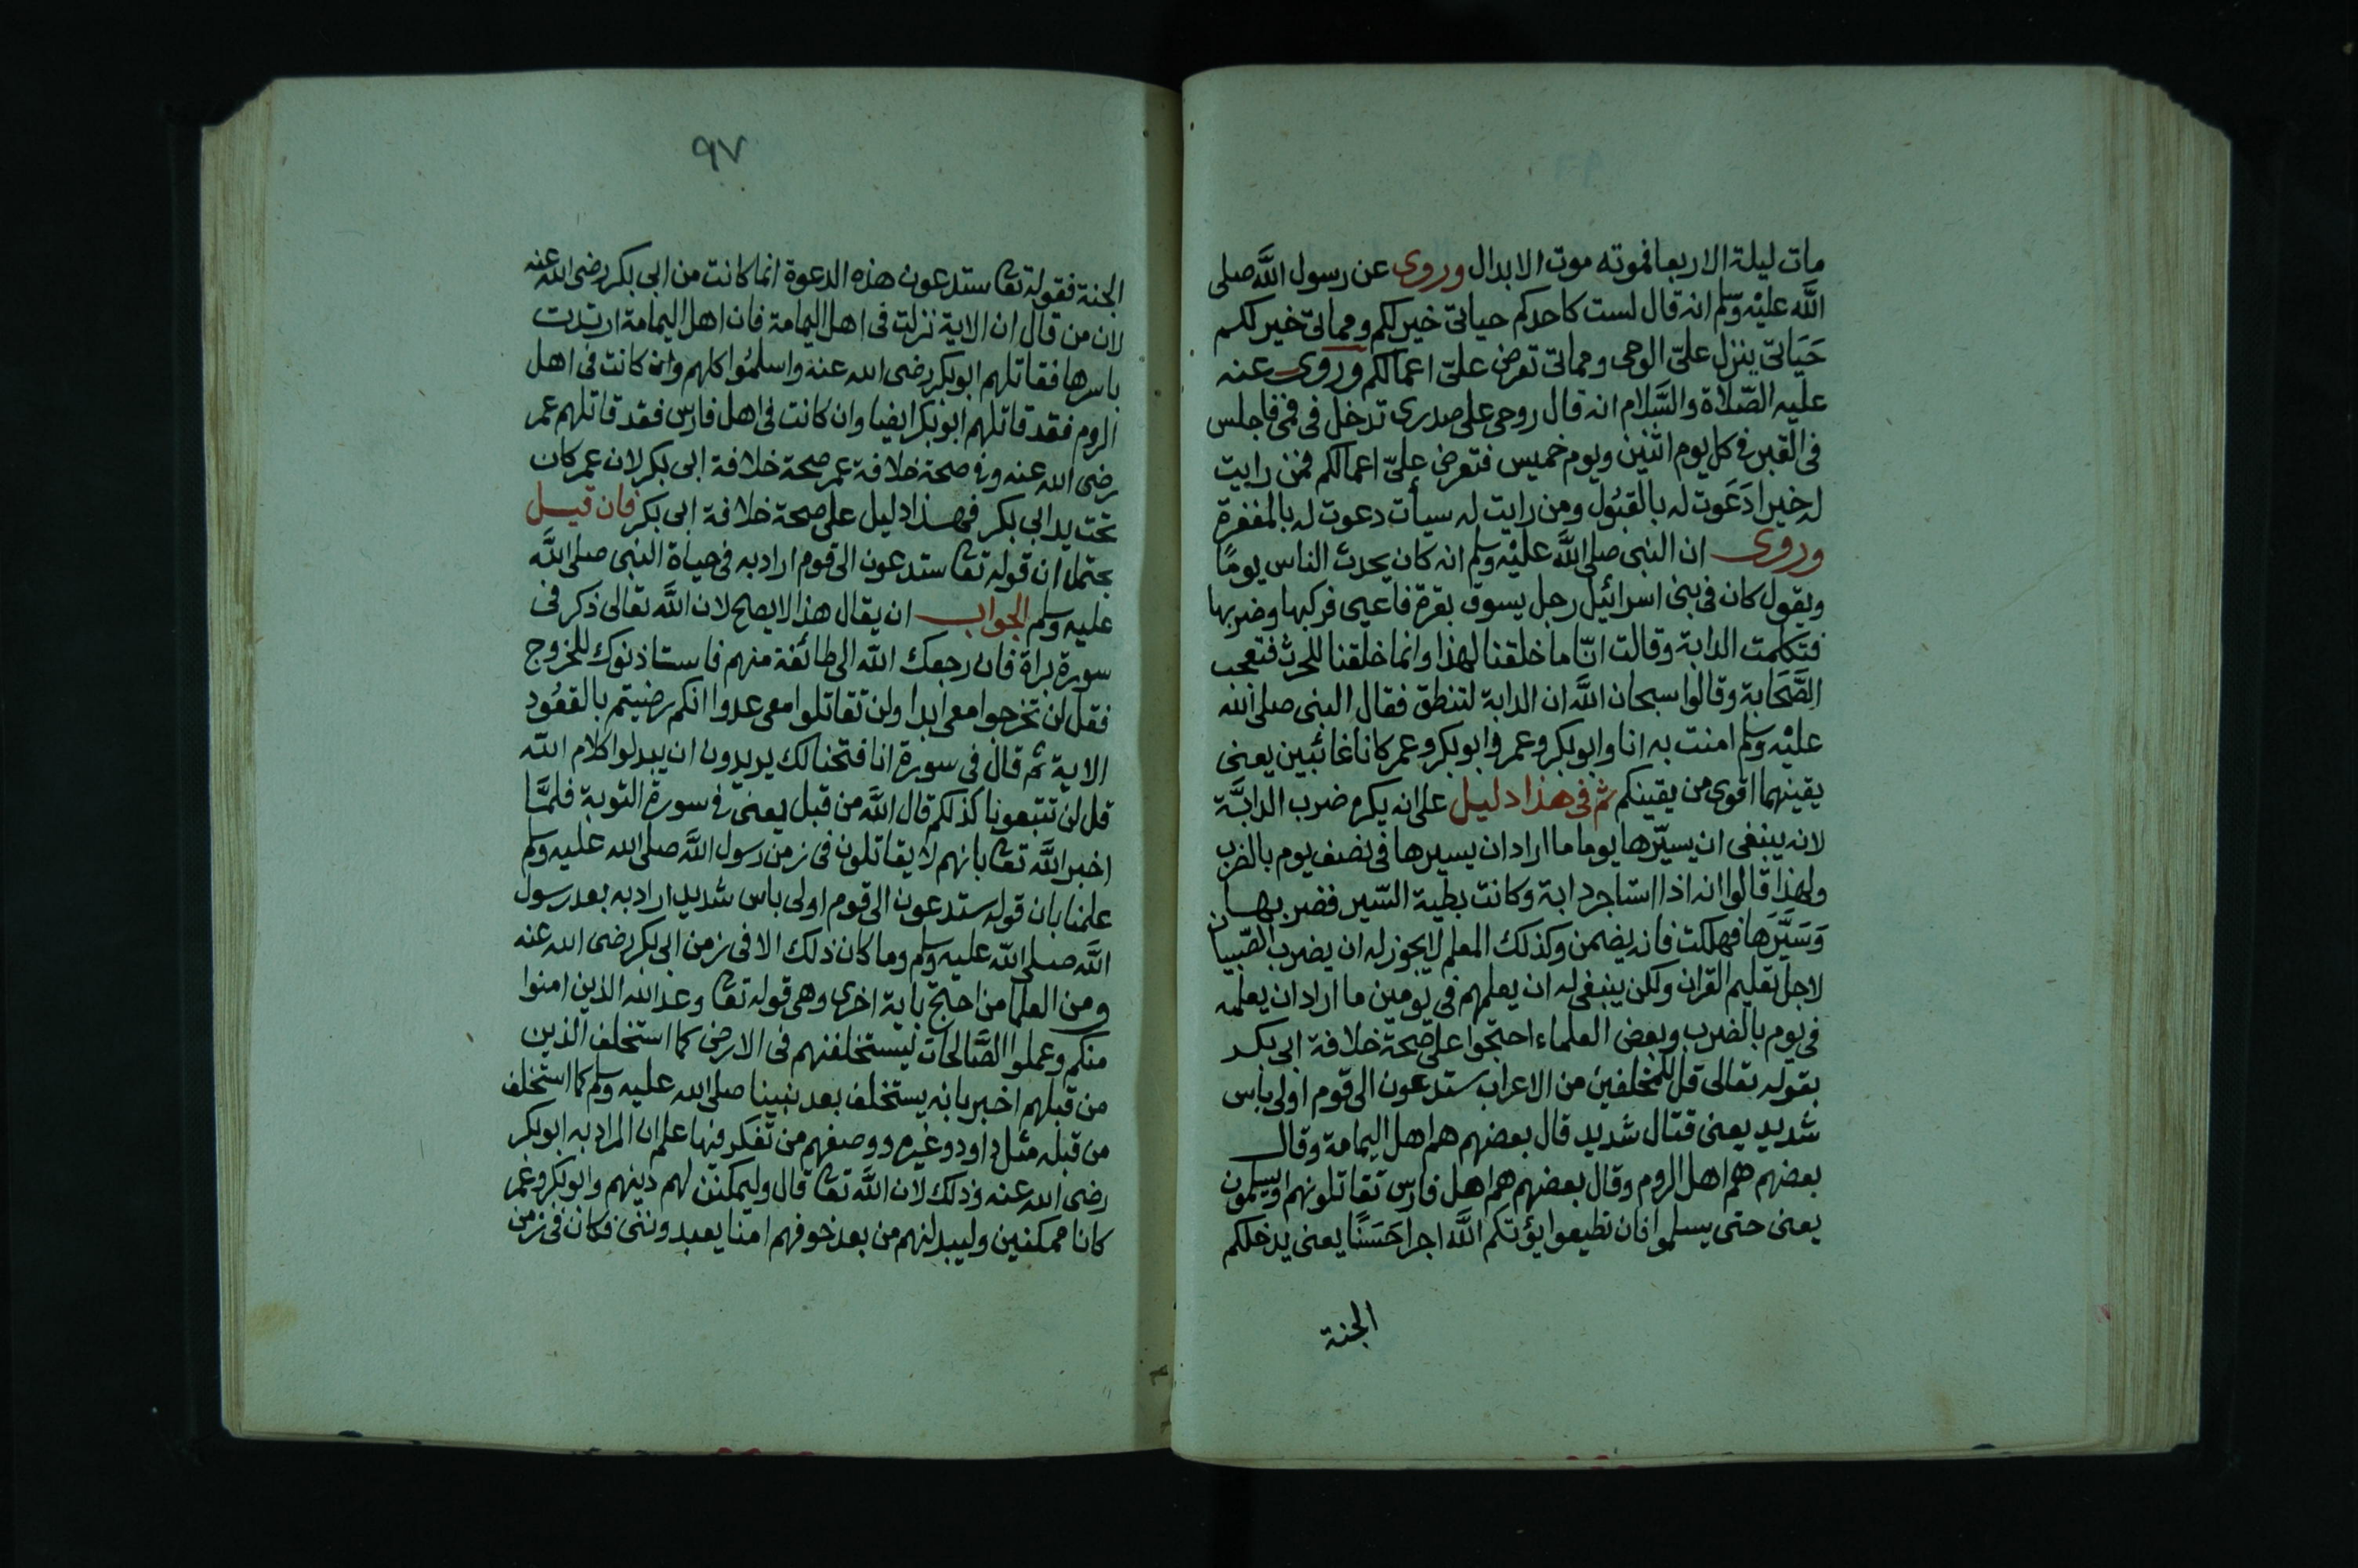 مات ليلة الاربعا فموته موت الابدال وروى عن رسول اللَّه صلى
اللَّه عليْه وسّلم انه قال لست كاحدكم حياتى خير لكم ومماتى خير لكم
حَيَاتى ينزل علىّ الوحى ومماتى تعرض علىّ اعمالكم وروى عنه
عليه الصّلاة والسَّلام انه قال روحى على صدرى تدخل فى فمى فاجلس
فى القبر فى كل يوم اثنين ويوم خميس فتعرض علىّ اعمالكم فمن رايت
له خيرا دَعَوت له بالقبُول ومن رايت له سيأت دعوت له بالمغفرة
وروى ان النبى صلى اللَّه عليْه وسلم انه كان يحدث الناس يومًا
ويقول كان فى بنى اسرائيل رجل يسوق بقرة فاعيى فركبها وضربها
فتكلمت الدابة وقالت انّا ما خلقنا لهذا وانما خلقنا للحرث فتعجب
الصَّحَابة وقالوا سبحان اللَّه ان الدابة لتنطق فقال النبى صلى الله
عليْه وسلم امنت به انا وابوبكر وعمر وابوبكر وعمر كانا غائبين يعنى
يقينهما اقوى من يقينكم ثم فى هذا دليل على انه يكره ضرب الدابَّة
لانه ينبغى ان يسيّرها يوما ما اراد ان يسيرها فى نصف يوم بالضرب
ولهذا قالوا انه اذا استاجر دابة وكانت بطية السّير فضربها
وَسَيَّرَها فهلكت فانه يضمن وكذلك المعلم لا يجوز له ان يضرب الصّبيان
لاجل تعليم القران ولكن ينبغى له ان يعلمهم فى يومين ما اراد ان يعلمه
فى يوم بالضرب وبعض العلماء احتجوا على صحة خلافة ابى بكر
بقوله تعالى قل للمخلفين من الاعراب ستدعون الى قوم اولى باس
شديد يعنى قتال شديد قال بعضهم هم اهل اليمامة وقال
بعضهم هم اهل الروم وقال بعضهم هم اهل فارس تقاتلونهم او يسلمون
يعنى حتى يسلموا فان تطيعوا يؤتكم اللَّه اجرا حَسَنًا يعنى يدخلكم
الجنة
٩٧
الجنة فقوله تعا ستدعون هذه الدعوة انما كانت من ابى بكر رضى الله عنه
لان من قال ان الاية نزلت فى اهل اليمامة فان اهل اليمامة ارتدت
باسرها فقاتلهم ابوبكر رضى الله عنه واسلمُوا كلهم وان كانت فى اهل
الروم فقد قاتلهم ابوبكر ايضا وان كانت فى اهل فارس فقد قاتلهم عمر
رضى الله عنه وفى صحة خلافة عمر صحة خلافة ابى بكر لان عمر كان
تحت يد ابى بكر فهذا دليل على صحة خلافة ابى بكر فان قيل
يحتمل ان قوله تعا ستدعون الى قوم اراد به فى حياة النبى صلى اللَّه
عليه وسلم الجواب ان يقال هذا لا يصلح لان اللَّه تعالى ذكر فى
سورة براة فان رجعك اللّه الى طائفة منهم فاستاذنوك للخروج
فقل لن تخرجوا معى ابدا ولن تقاتلوا معى عدوا انكم رضيتم بالقعُود
الاية ثم قال فى سورة انا فتحنا لك يريدون ان يبدلوا كلام اللّه
قل لن تتبعونا كذلكم قال اللَّه من قبل يعنى فى سورة التوبة فلمَّا
اخبر اللَّه تعا بانهم لا يقاتلون فى زمن رسول اللَّه صلى الله عليه وسلم
علمنا بان قوله ستدعون الى قوم اولى باس شديد اراد به بعد رسول
اللَّه صلى اللّه عليه وسلم وما كان ذلك الا فى زمن ابى بكر رضى الله عنه
ومن العلما من احتج باية اخرى وهى قوله تعا وعد الله الذين امنوا
منكم وعملوا الصَّالحات ليستخلفنهم فى الارض كما استخلف الذين
من قبلهم اخبر بانه يستخلف بعد نبينا صلى الله عليه وسلم كما استخلف
من قبله مثل داود وغيره ووصفهم من تفكر فيها علم ان المراد به ابوبكر
رضى الله عنه وذلك لان اللَّه تعا قال وليمكنن لهم دينهم وابوبكر وعمر
كانا ممكنين وليبدلنهم من بعد خوفهم امنا يعبدوننى وكان فى زمن